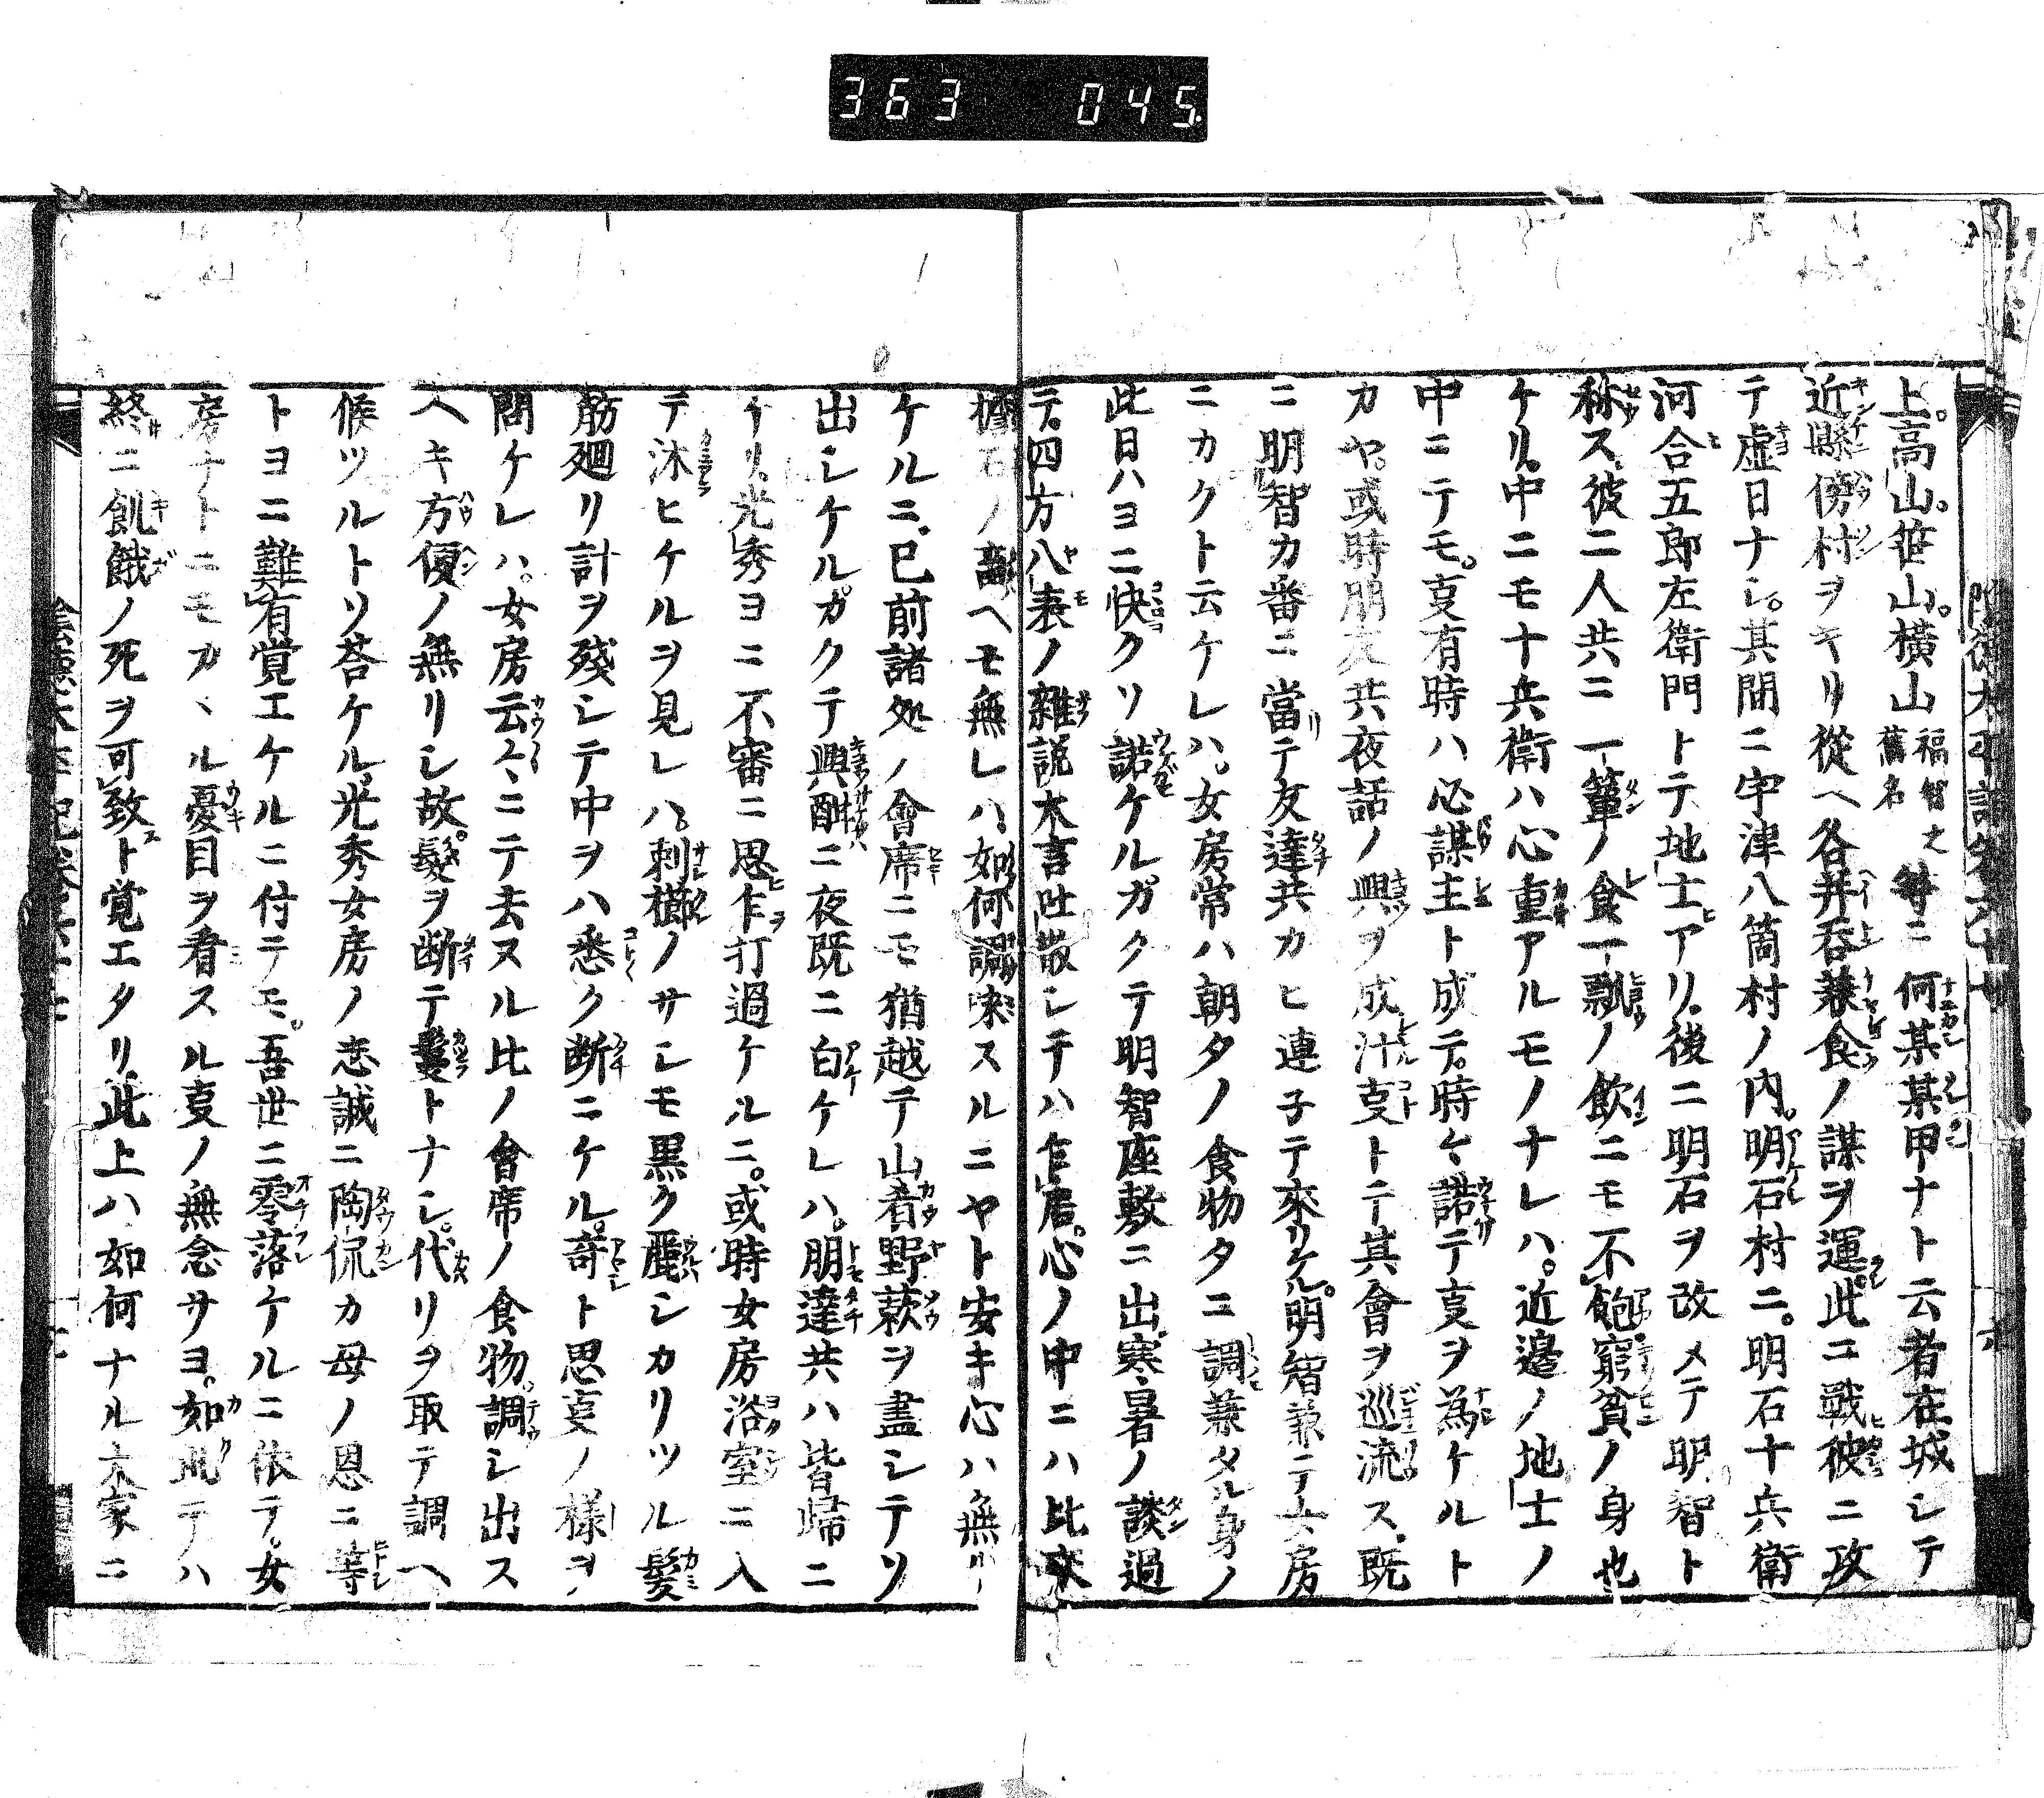 363 045
上。高山。笹山。横山 福智之舊名 等ニ何某某甲ナト云者在城シテ
近縣傍村ヲキリ從ヘ各并吞兼食ノ謀ヲ運此ニ戰彼ニ攻
テ虚日ナシ。其間ニ宇津八箇村ノ内。明石村ニ。明石十兵衛
河合五郎左衛門トテ地士アリ。後ニ明石ヲ改メテ明智ト
称ス。彼二人共ニ一簞ノ食一瓢ノ飲ニモ不飽窮貧ノ身也
ケリ。中ニモ十兵衛ハ心重アルモノナレハ。近邉ノ地士ノ
中ニテモ。㕝有時ハ必謀主ト成テ。時々諾テ㕝ヲ為ケルト
カヤ。或時朋友共夜話ノ興ヲ成汁㕝トテ其會ヲ巡流ス。既
ニ明智カ番ニ當テ友達共カヒ連子テ來リケル。明智兼テ女房
ニカクト云ケレハ。女房常ハ朝タノ食物タニ調兼タル身ノ
此日ハヨニ快クソ諾ケルガクテ明智座敷ニ出寒暑ノ談過
テ。四方八表ノ雜説大言吐散シテハ乍居。心ノ中ニハ比來
石ノ ヘモ無レハ如何調味スルニヤト安キ心ハ無リ
ケルニ。已前諸処ノ會席ニモ猶越テ山肴野蔌ヲ盡シテソ
出シケル。カクテ興酣ニ夜既ニ白ケレハ。朋達共ハ皆帰ニ
ケリ。光秀ヨニ不審ニ思乍打過ケルニ。或時女房浴室ニ入
テ沐ヒケルヲ見レハ。刺櫛ノサシモ黒ク麗シカリツル髪
筋廻リ計ヲ殘シテ中ヲハ悉ク断ニケル。奇ト思㕝ノ様ヲ
問ケレハ。女房云々ニテ去ヌル比ノ會席ノ食物。調シ出ス
ヘキ方便ノ無リシ故。髪ヲ断テ鬘トナシ。代リヲ取テ調ヘ
候ツルトソ荅ケル。光秀女房ノ志誠ニ陶侃カ母ノ恩ニ等
トヨニ難有覚エケルニ付テモ。吾世ニ零落ケルニ依テ。女
房ナトニモカヽル憂目ヲ看スル㕝ノ無念サヨ。如此テハ
終ニ飢餓ノ死ヲ可致ト覚エタリ。此上ハ如何ナル大家ニ